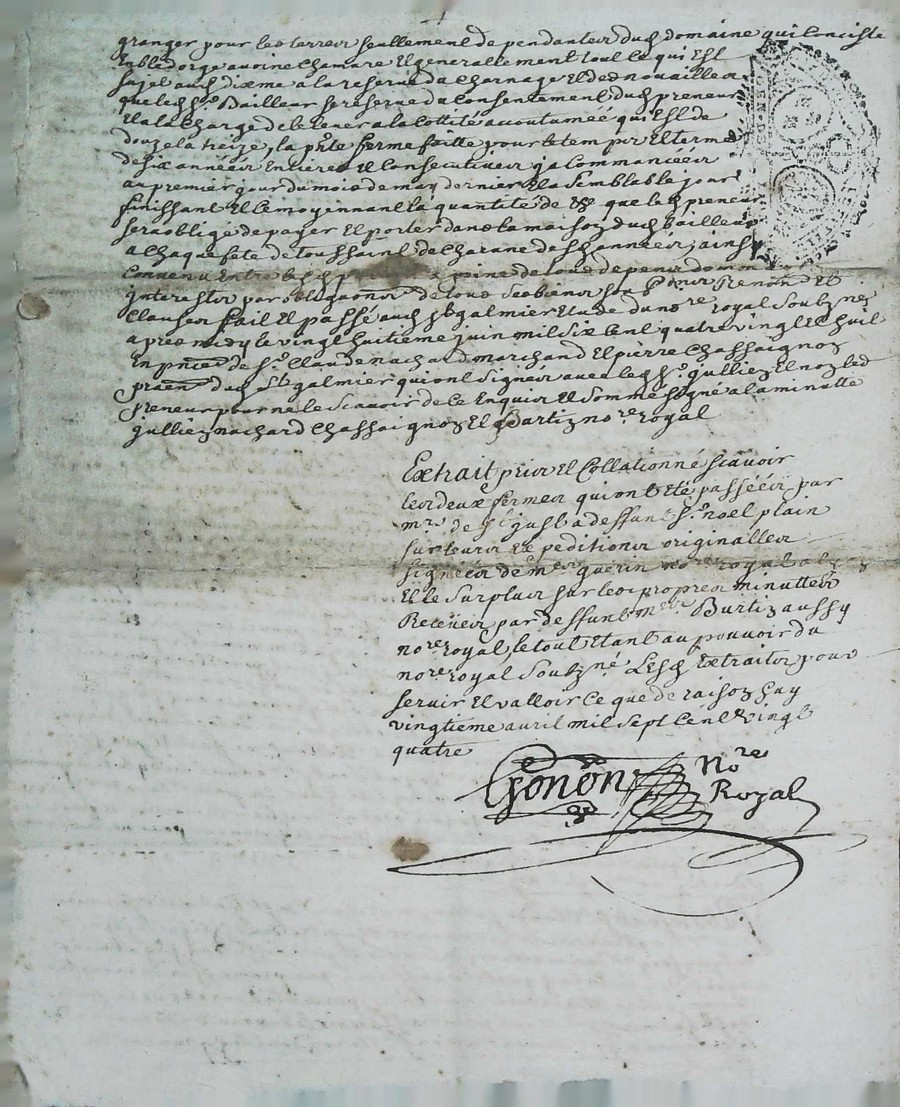 granger pour les terres seullement dependantes dud domaine qui Conciste
En bled orge avoine Chanvre Et generallement tout ce qui Est
sujet aud dixme a la reserve du Charnage Et des novailles
que led Sr. Bailleur se reserve du Consentement dud preneur
Et a la Charge de le lever a la Cottité accoutumée qui Est de
douze la treize, la pnte ferme faitte pour le tem ps Et terme
de six années Entieres Et Consecutives ja Commancées
au premier jour du mois de may dernier Et a Semblable jour
finissant Et le moyennant la quantité de que led preneur
sera obligé de payer Et porter dans la maison dud bailleur
a Chaque fete de toussaint de Chacune desd années, ainsy
Convenu Entre lesd a peine de tous depens domm
interests par obligaõns de tous ses biens sous Renonõns Et
Clauses fait Et passé aud St galmier Etude du nore royal Soubzné
apres midy le vingt huitieme juin mil six Cent quatre vingt Et huit
En pnce de Sr. Claude nachard marchand Et pierre Chassaignon
praěn dud St galmier qui ont Signés avec led Sr. jullien Et non led
preneur pour ne le Scavoir de ce Enquis Et Sommé Signé a la minutte
jullien nachard Chassaignon Et Burtin nore royal
Extrait pris Et Collationné Scavoir
les deux fermes qui ont Eté passéés par
mre de St just a deffunt Sr. noel plain
sur leurs Expeditions originalles
signéés de mes guerin nore royal
Et le Surplus sur les propres minuttes
Receües par deffunt mre Burtin aussy
nore royal le tout Etant au pouvoir du
nore royal Soubzné Lesd Extraits pour
servir Et valloir Ce que de raison Ce
vingtieme avril mil sept Cent vingt
quatre
Gonon Nore
Royal